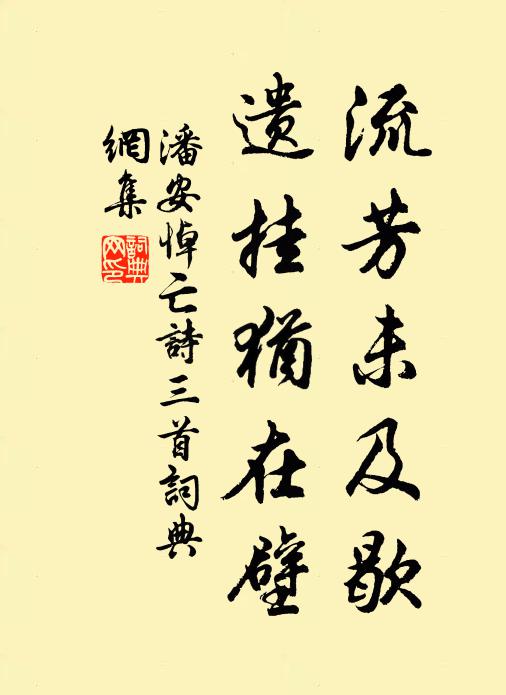 流芳未及歇
遺挂猶在壁
潘安悼亡詩三首詞典
網集
詞典網印